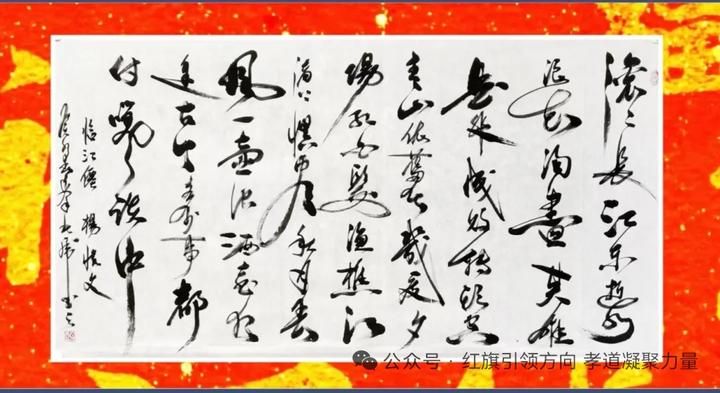 滚〻長江东逝水
浪花淘盡英雄
是非成敗转头空
青山依舊在幾度夕
陽红白髮渔樵江
渚上惯看秋月春
風一壶浊酒喜相
逢古今多少事都
付笑谈中
临江僊 楊慎文
公众号 · 红旗引领方向 孝道凝聚力量